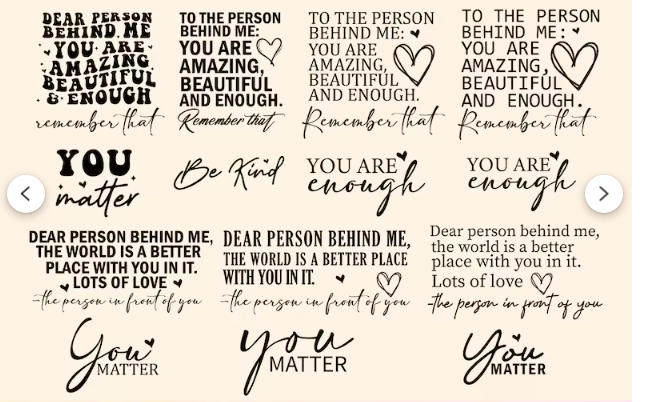 DEAR PERSON
BEHIND ME
YOU ARE
AMAZING
BEAUTIFUL
& ENOUGH
remember that
TO THE PERSON
BEHIND ME:
YOU ARE
AMAZING,
BEAUTIFUL
AND ENOUGH.
Remember that
TO THE PERSON
BEHIND ME:
YOU ARE
AMAZING,
BEAUTIFUL
AND ENOUGH.
Remember that
TO THE PERSON
BEHIND ME:
YOU ARE
AMAZING,
BEAUTIFUL
AND ENOUGH.
Remember that
YOU
matter
Be Kind
YOU ARE
enough
YOU ARE
enough
DEAR PERSON BEHIND ME,
THE WORLD IS A BETTER
PLACE WITH YOU IN IT.
LOTS OF LOVE
-the person in front of you
DEAR PERSON BEHIND ME,
THE WORLD IS A BETTER PLACE
WITH YOU IN IT.
-the person in front of you
Dear person behind me,
the world is a better
place with you in it.
Lots of love
-the person in front of you
You
MATTER
you
MATTER
You
MATTER